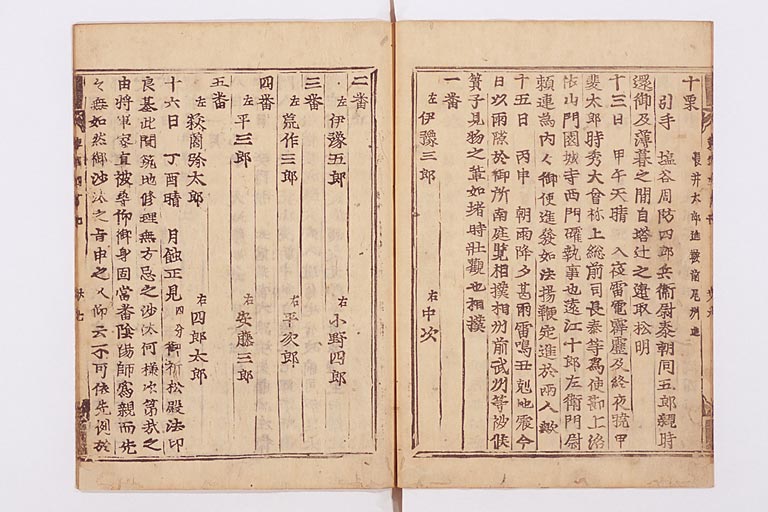 十栗
引手 塩谷周防四郎兵衛尉泰朝同五郎親時
還御及薄暮之間自塔辻之邊取松明
十三日 甲午天晴 入夜雷電霹靂及終夜曉甲
斐太郎時秀大曾祢上総前司長泰等為使節上洛
依山門園城寺西門確執事也遠江十郎左衛門尉
頼連為内々御使進發如法揚鞭宛進於兩人歟
十五日 丙申 朝雨降夕甚雨雷鳴丑剋地震今
日以雨隙於御所南庭覽相撲相州前武州等被候
簀子見物之輩如堵時壯觀也相撲
一番
左 伊豫三郎 右 中次
二番
左 伊豫五郎 右 小野四郎
三番
左 荒作三郎 右 平次郎
四番
左 平三郎 右 安藤三郎
五番
左 弥太郎 右 四郎太郎
十六日 丁酉晴 月蝕正見 四分 御祈松殿法印
良基此間筑地修理無方忌之沙汰何様次第哉之
由将軍家直被尋仰御身固當番陰陽師為親而先
々無如然御沙汰之旨申之人仰云不可依先例於